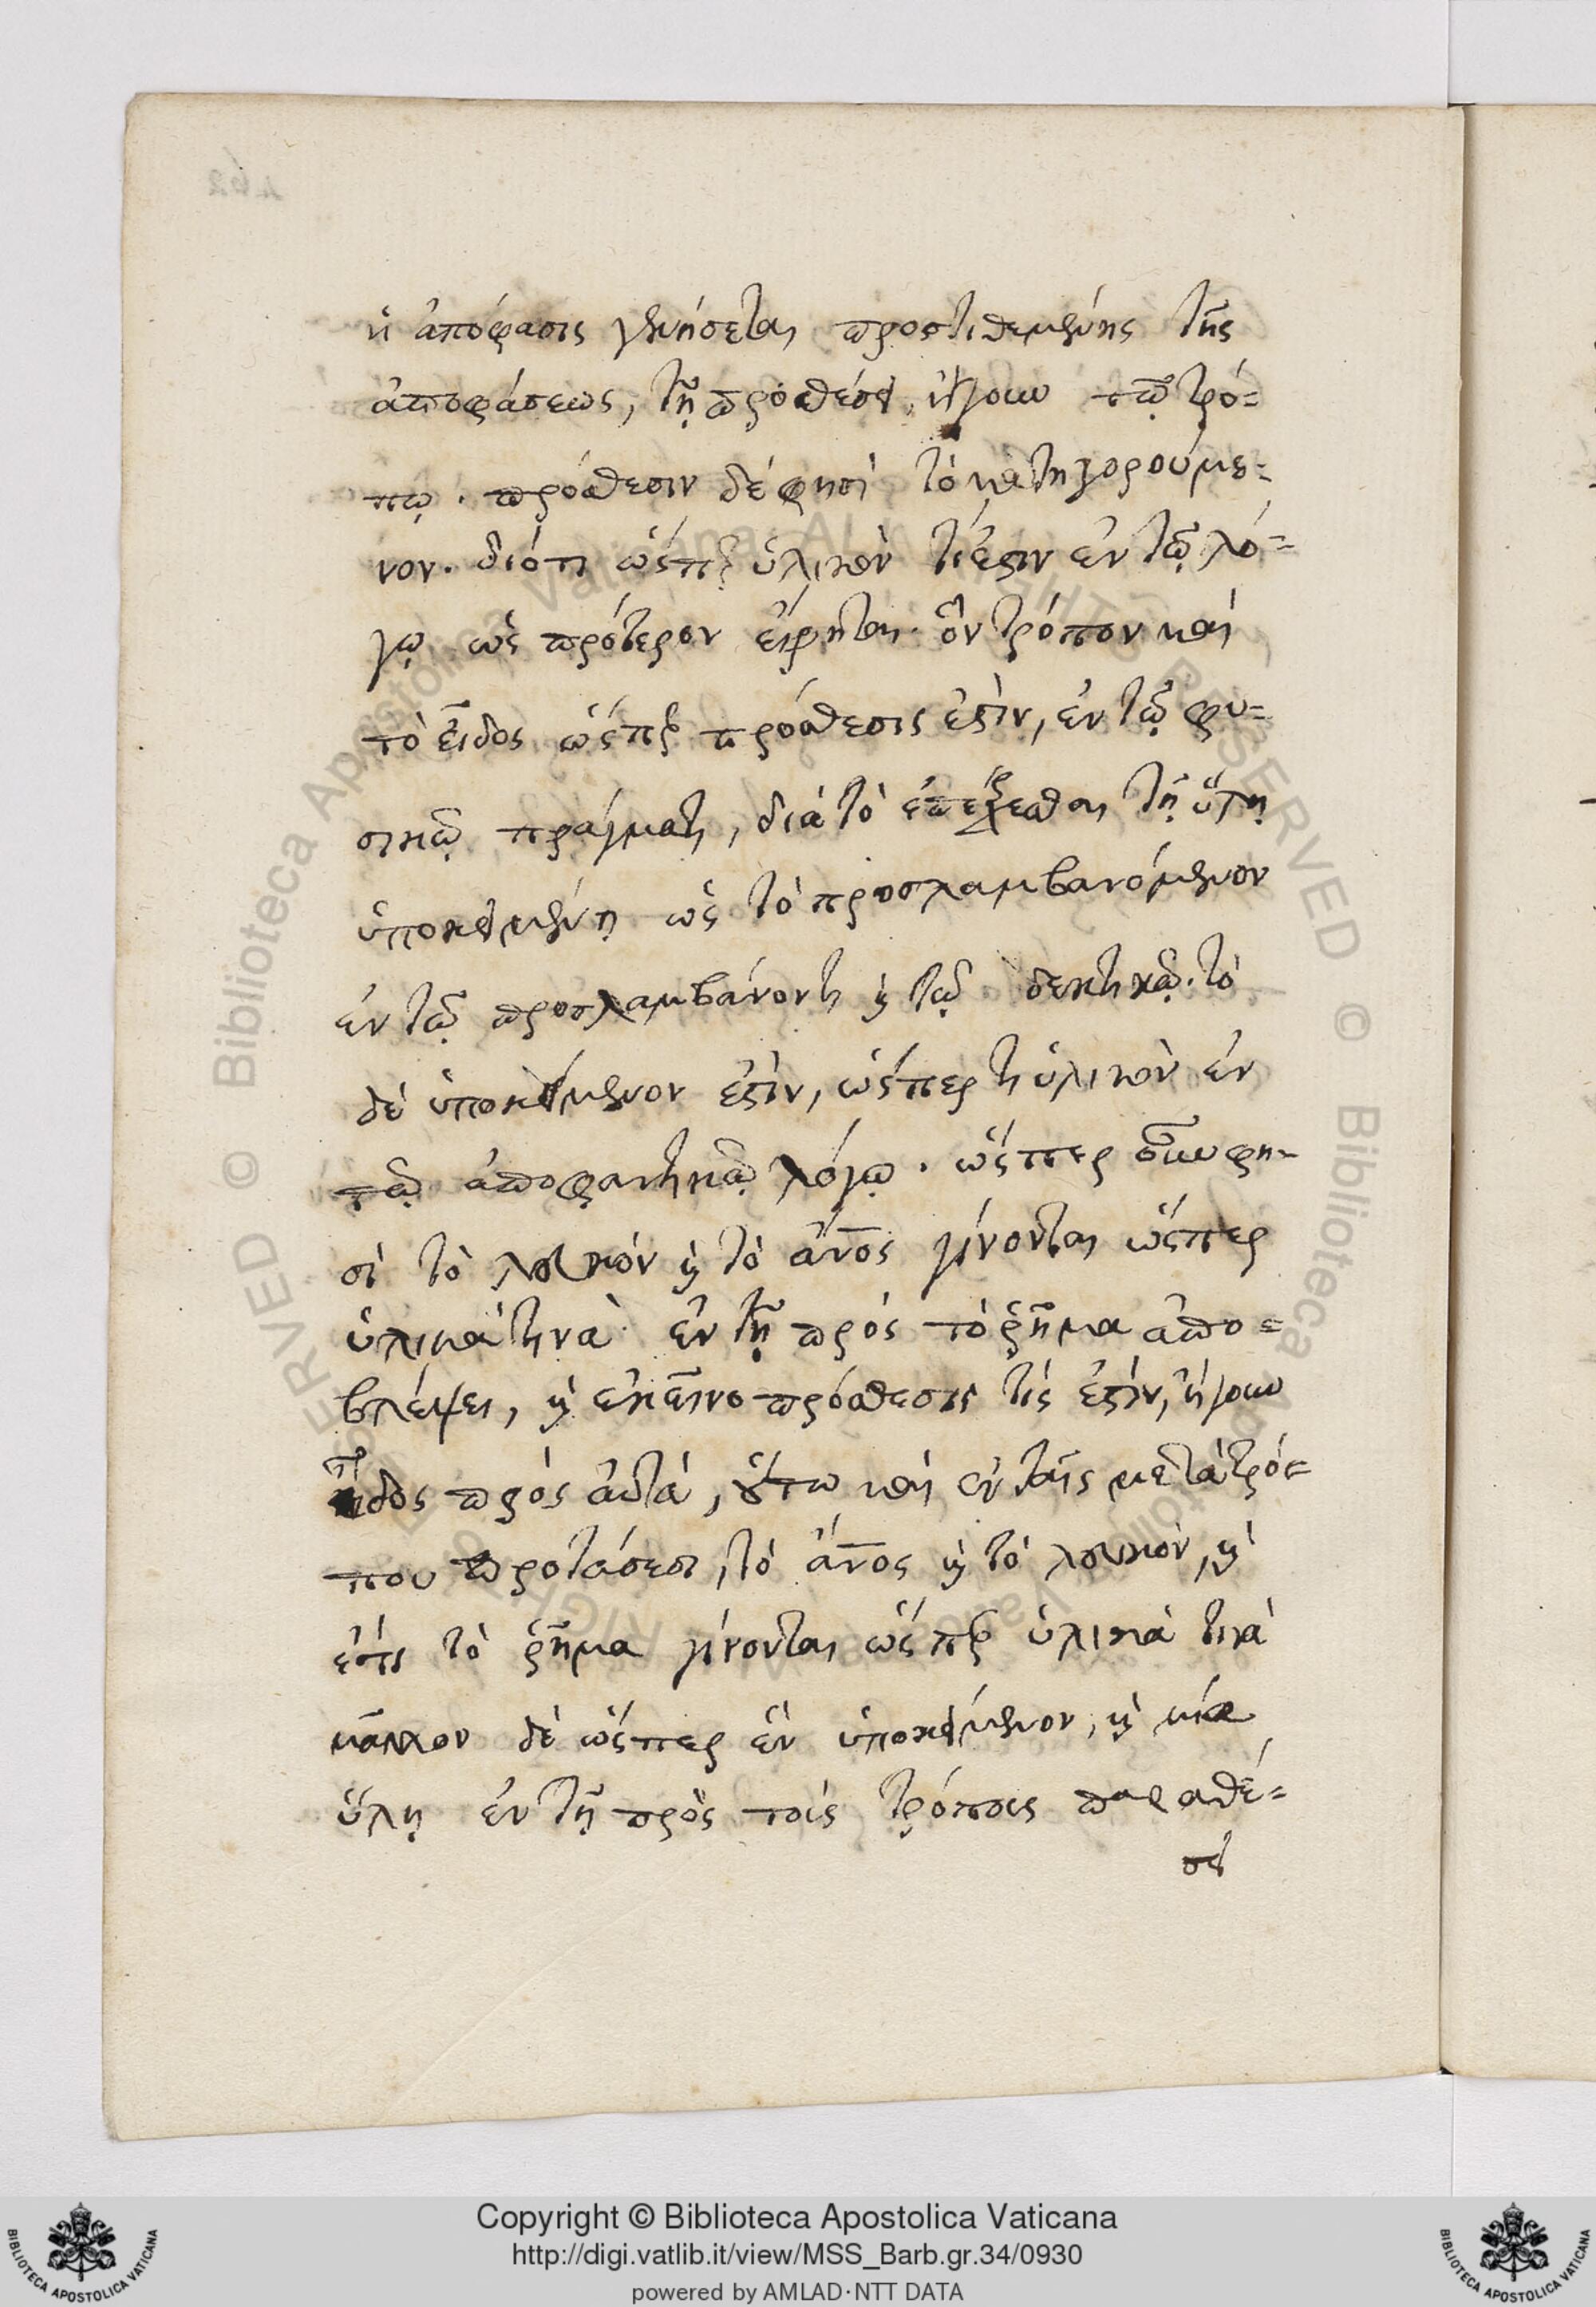 ἡ ἀπόφασις γενήσεται προστιθεμένης τῆς
ἀποφάσεως, τῇ προσθέσει, ἤγουν τῷ τρό=
πῳ. πρόσθεσιν δέ φησι τὸ κατηγορούμε=
νον. διότι ὥσπερ ὑλικὸν τί ἐστιν ἐν τῷ λό=
γῳ ὡς πρότερον εἴρηται. ὃν τρόπον καὶ
τὸ εἶδος ὥσπερ πρόσθεσις ἐστὶν, ἐν τῷ φυ=
σικῷ πράγματι, διὰ τὸ ἐπέρχεσθαι τῇ ὕλῃ
ὑποκειμένῃ ὡς τὸ προσλαμβανόμενον
ἐν τῷ προσλαμβάνοντι ϗ τῷ δεκτικῷ. τὸ
δὲ ὑποκείμενον ἐστὶν, ὥσπερ τι ὑλικὸν ἐν
τῷ ἀποφαντικῷ λόγῳ. ὥσπερ οὖν φη=
σὶ τὸ λευκόν ϗ τὸ ἄνος γίνονται ὥσπερ
ὑλικά τινα ἐν τῇ πρὸς τὸ ῥῆμα ἀπο=
βλέψει, ϗ ἐκεῖνο πρόσθεσις τίς ἐστὶν, ἤγουν
εἶδος πρὸς αὐτά, οὕτω καὶ ἐν ταῖς μετὰ τρό=
που προτάσεσι, τὸ ἄνος ϗ τὸ λευκόν, ϗ
ἔτι τὸ ῥῆμα γίνονται ὥσπερ ὑλικά τινα
μᾶλλον δὲ ὥσπερ ἓν ὑποκείμενον, ϗ μία
ὕλη ἐν τῇ πρὸς τοῖς τρόποις παραθέ=
σει
Copyright © Biblioteca Apostolica Vaticana
http://digi.vatlib.it/view/MSS_Barb.gr.34/0930
powered by AMLAD·NTT DATA